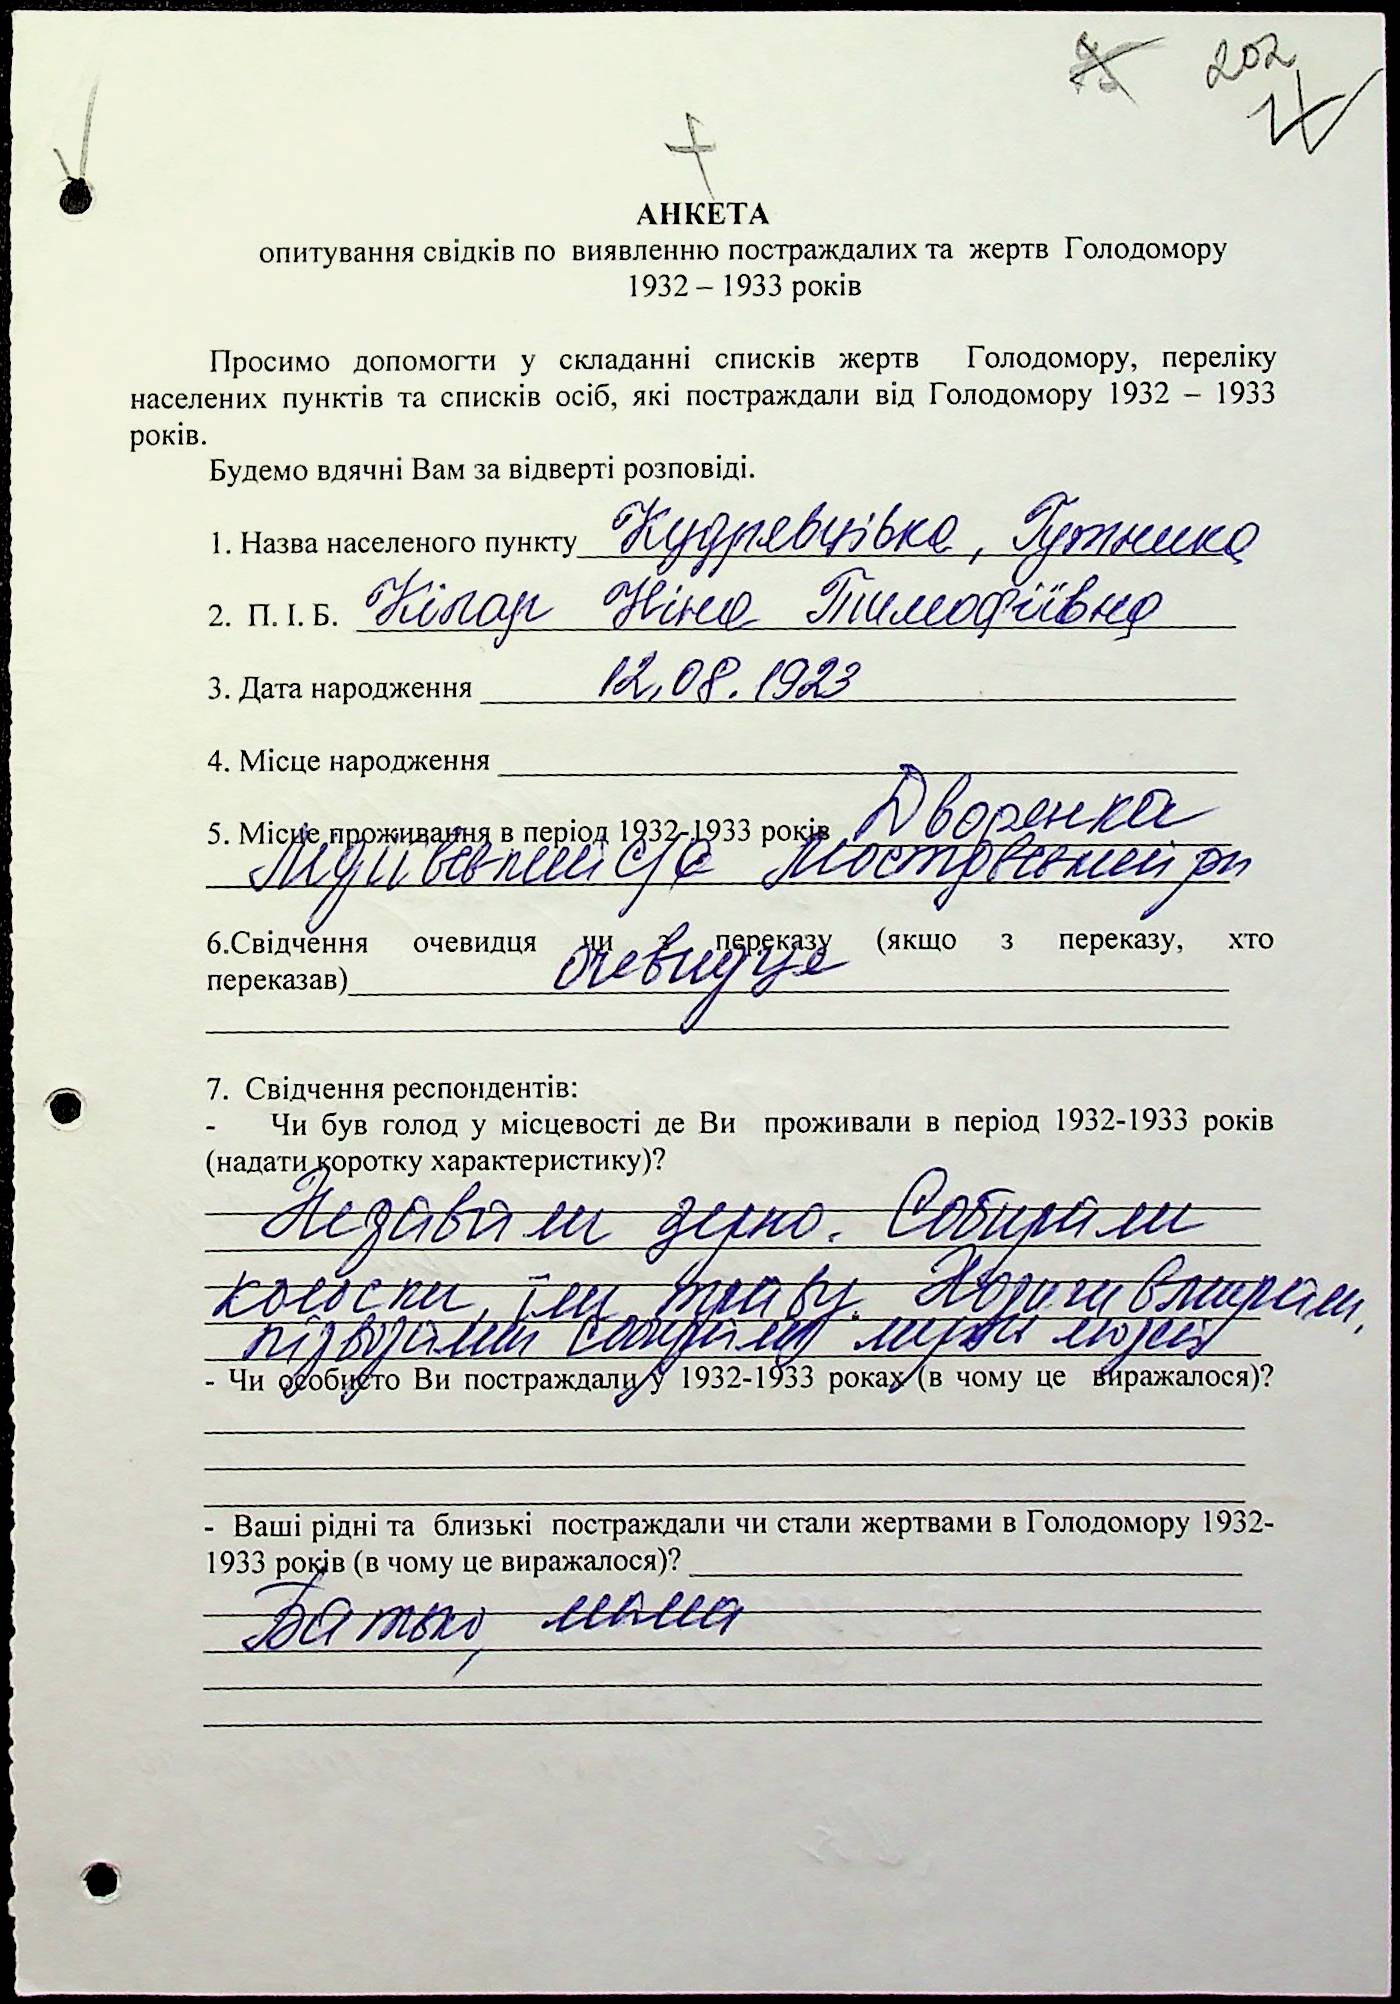 202
АНКЕТА
опитування свідків по виявленню постраждалих та жертв Голодомору
1932 – 1933 років
Просимо допомогти у складанні списків жертв Голодомору, переліку
населених пунктів та списків осіб, які постраждали від Голодомору 1932 – 1933
років.
Будемо вдячні Вам за відверті розповіді.
1. Назва населеного пункту Кудрявцівка,
2. П. І. Б. Ніна Тимофіївна
3. Дата народження 12.08.1923
4. Місце народження
5. Місце проживання в період 1932-1933 років Дворянка
с/с Мостовський рн
6.Свідчення очевидця чи з переказу (якщо з переказу, хто
переказав) очевидце
7. Свідчення респондентів:
- Чи був голод у місцевості де Ви проживали в період 1932-1933 років
(надати коротку характеристику)?
зерно. Собирали
колоски, їли траву.
собирали людей
- Чи особисто Ви постраждали у 1932-1933 роках (в чому це виражалося)?
- Ваші рідні та близькі постраждали чи стали жертвами в Голодомору 1932-
1933 років (в чому це виражалося)?
Батько, мама